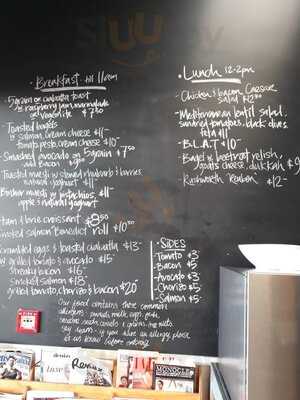 Breakfast till 11am
5 grain or ciabatta toast
w raspberry jam, marmalade
or vegemite $7.50
Toasted bagels
w salmon, cream cheese $11
tomato, pesto, cream cheese $10
Smashed avocado on 5 grain $7.50
add bacon
Toasted muesli w stewed rhubarb & berries
natural yoghurt $11
Bircher muesli w pistachios, $11
apple & natural yoghurt
Ham & brie croissant $8.50
Smoked salmon Benedict roll $10.50
Scrambled eggs & toasted ciabatta $13
w grilled tomato & avocado $15
streaky bacon $16
smoked salmon $18
grilled tomato, chorizo & bacon $20
Our food contains these common
allergens: milk, eggs
nuts
if you have an allergy please
let us know before ordering
Lunch 12-2pm
Chicken & bacon Caesar
salad
Mediterranean lentil salad
sundried tomatoes, black olives,
feta $11
B.L.A.T $10
Bagel w beetroot relish,
goats cheese, dukkah $9
Rushworth Reuben $12
SIDES
Tomato $3
Bacon $5
Avocado $3
Chorizo $5
Salmon $5
MONOCLE